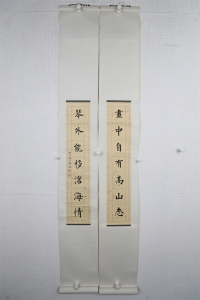 畫中自有高山意
琴外能移滄海情